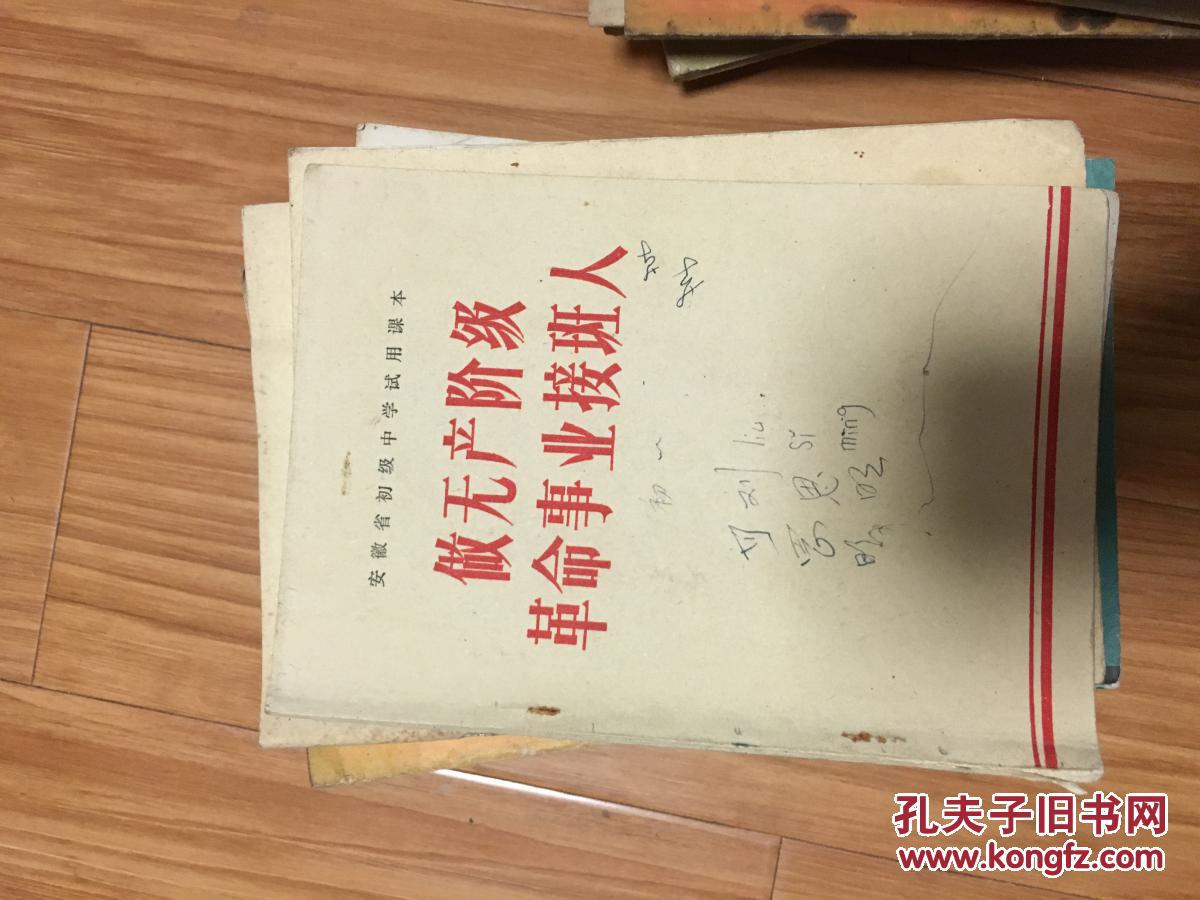 安徽省初级中学试用课本
做无产阶级
革命事业接班人
初一
刘 liu
思 si
明 ming
孔夫子旧书网
www.kongfz.com